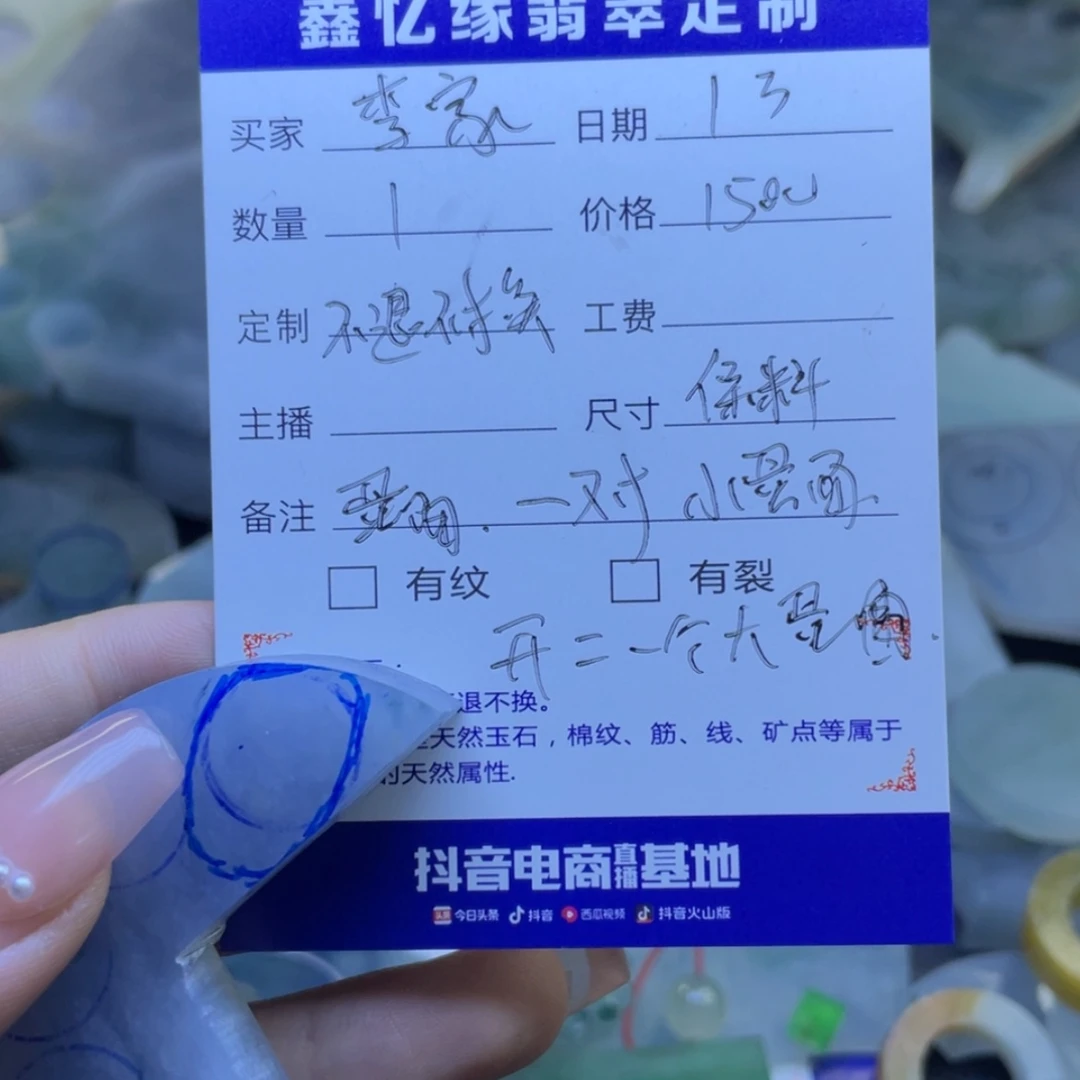 鑫忆缘翡翠定制
买家 李家 日期 13
数量 1 价格 1500
定制 不退不换 工费
主播 尺寸 保料
备注 一对 小蛋面.
有纹 有裂
开二一个大蛋面.
退不换。
天然玉石，棉纹、筋、线、矿点等属于
的天然属性.
抖音电商直播基地
头条 今日头条 抖音 西瓜视频 抖音火山版